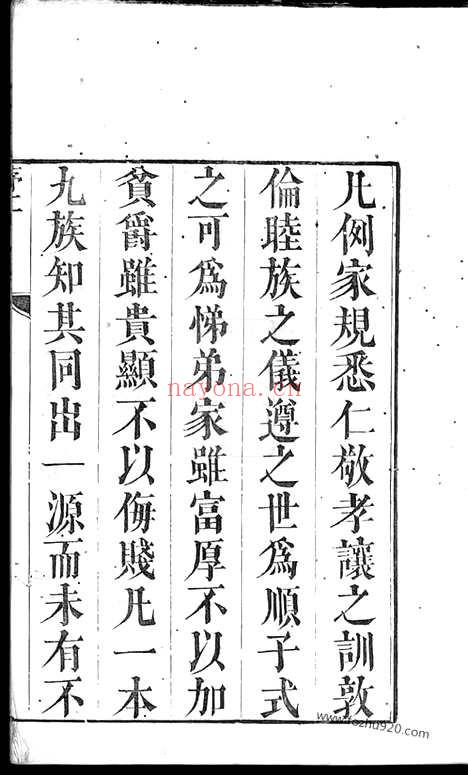 凡例家規悉仁敬孝讓之訓敦
倫睦族之儀遵之世爲順子式
之可爲悌弟家雖富厚不以加
貧爵雖貴顯不以侮賤凡一本
九族知其同出一源而未有不
nayona.cn
www.fozhu920.com